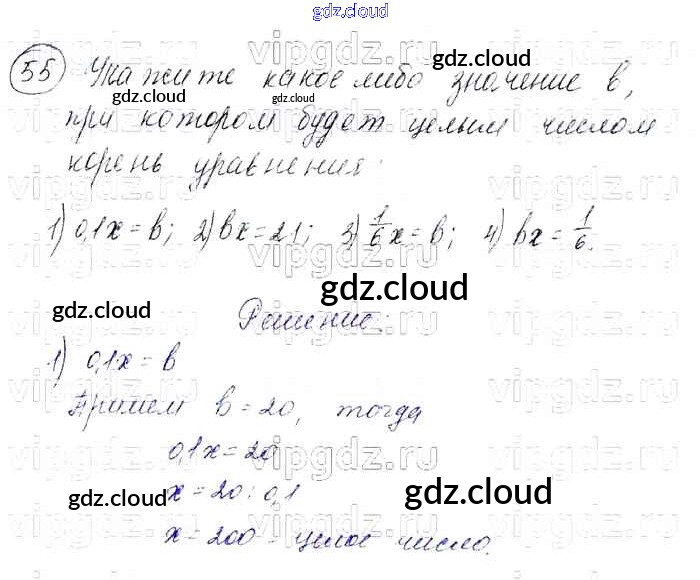 gdz.cloud
55 Укажите какое либо значение b,
при котором будет целым числом
корень уравнения:
1) 0,1x = b; 2) bx = 21; 3) 1/6 x = b; 4) bx = 1/6.
Решение:
1) 0,1x = b
Примем b = 20, тогда
0,1x = 20
x = 20 : 0,1
x = 200 - целое число.
vipgdz.ru
gdz.cloud
gdz.cloud
gdz.cloud
gdz.cloud
gdz.cloud
gdz.cloud
gdz.cloud
gdz.cloud
gdz.cloud